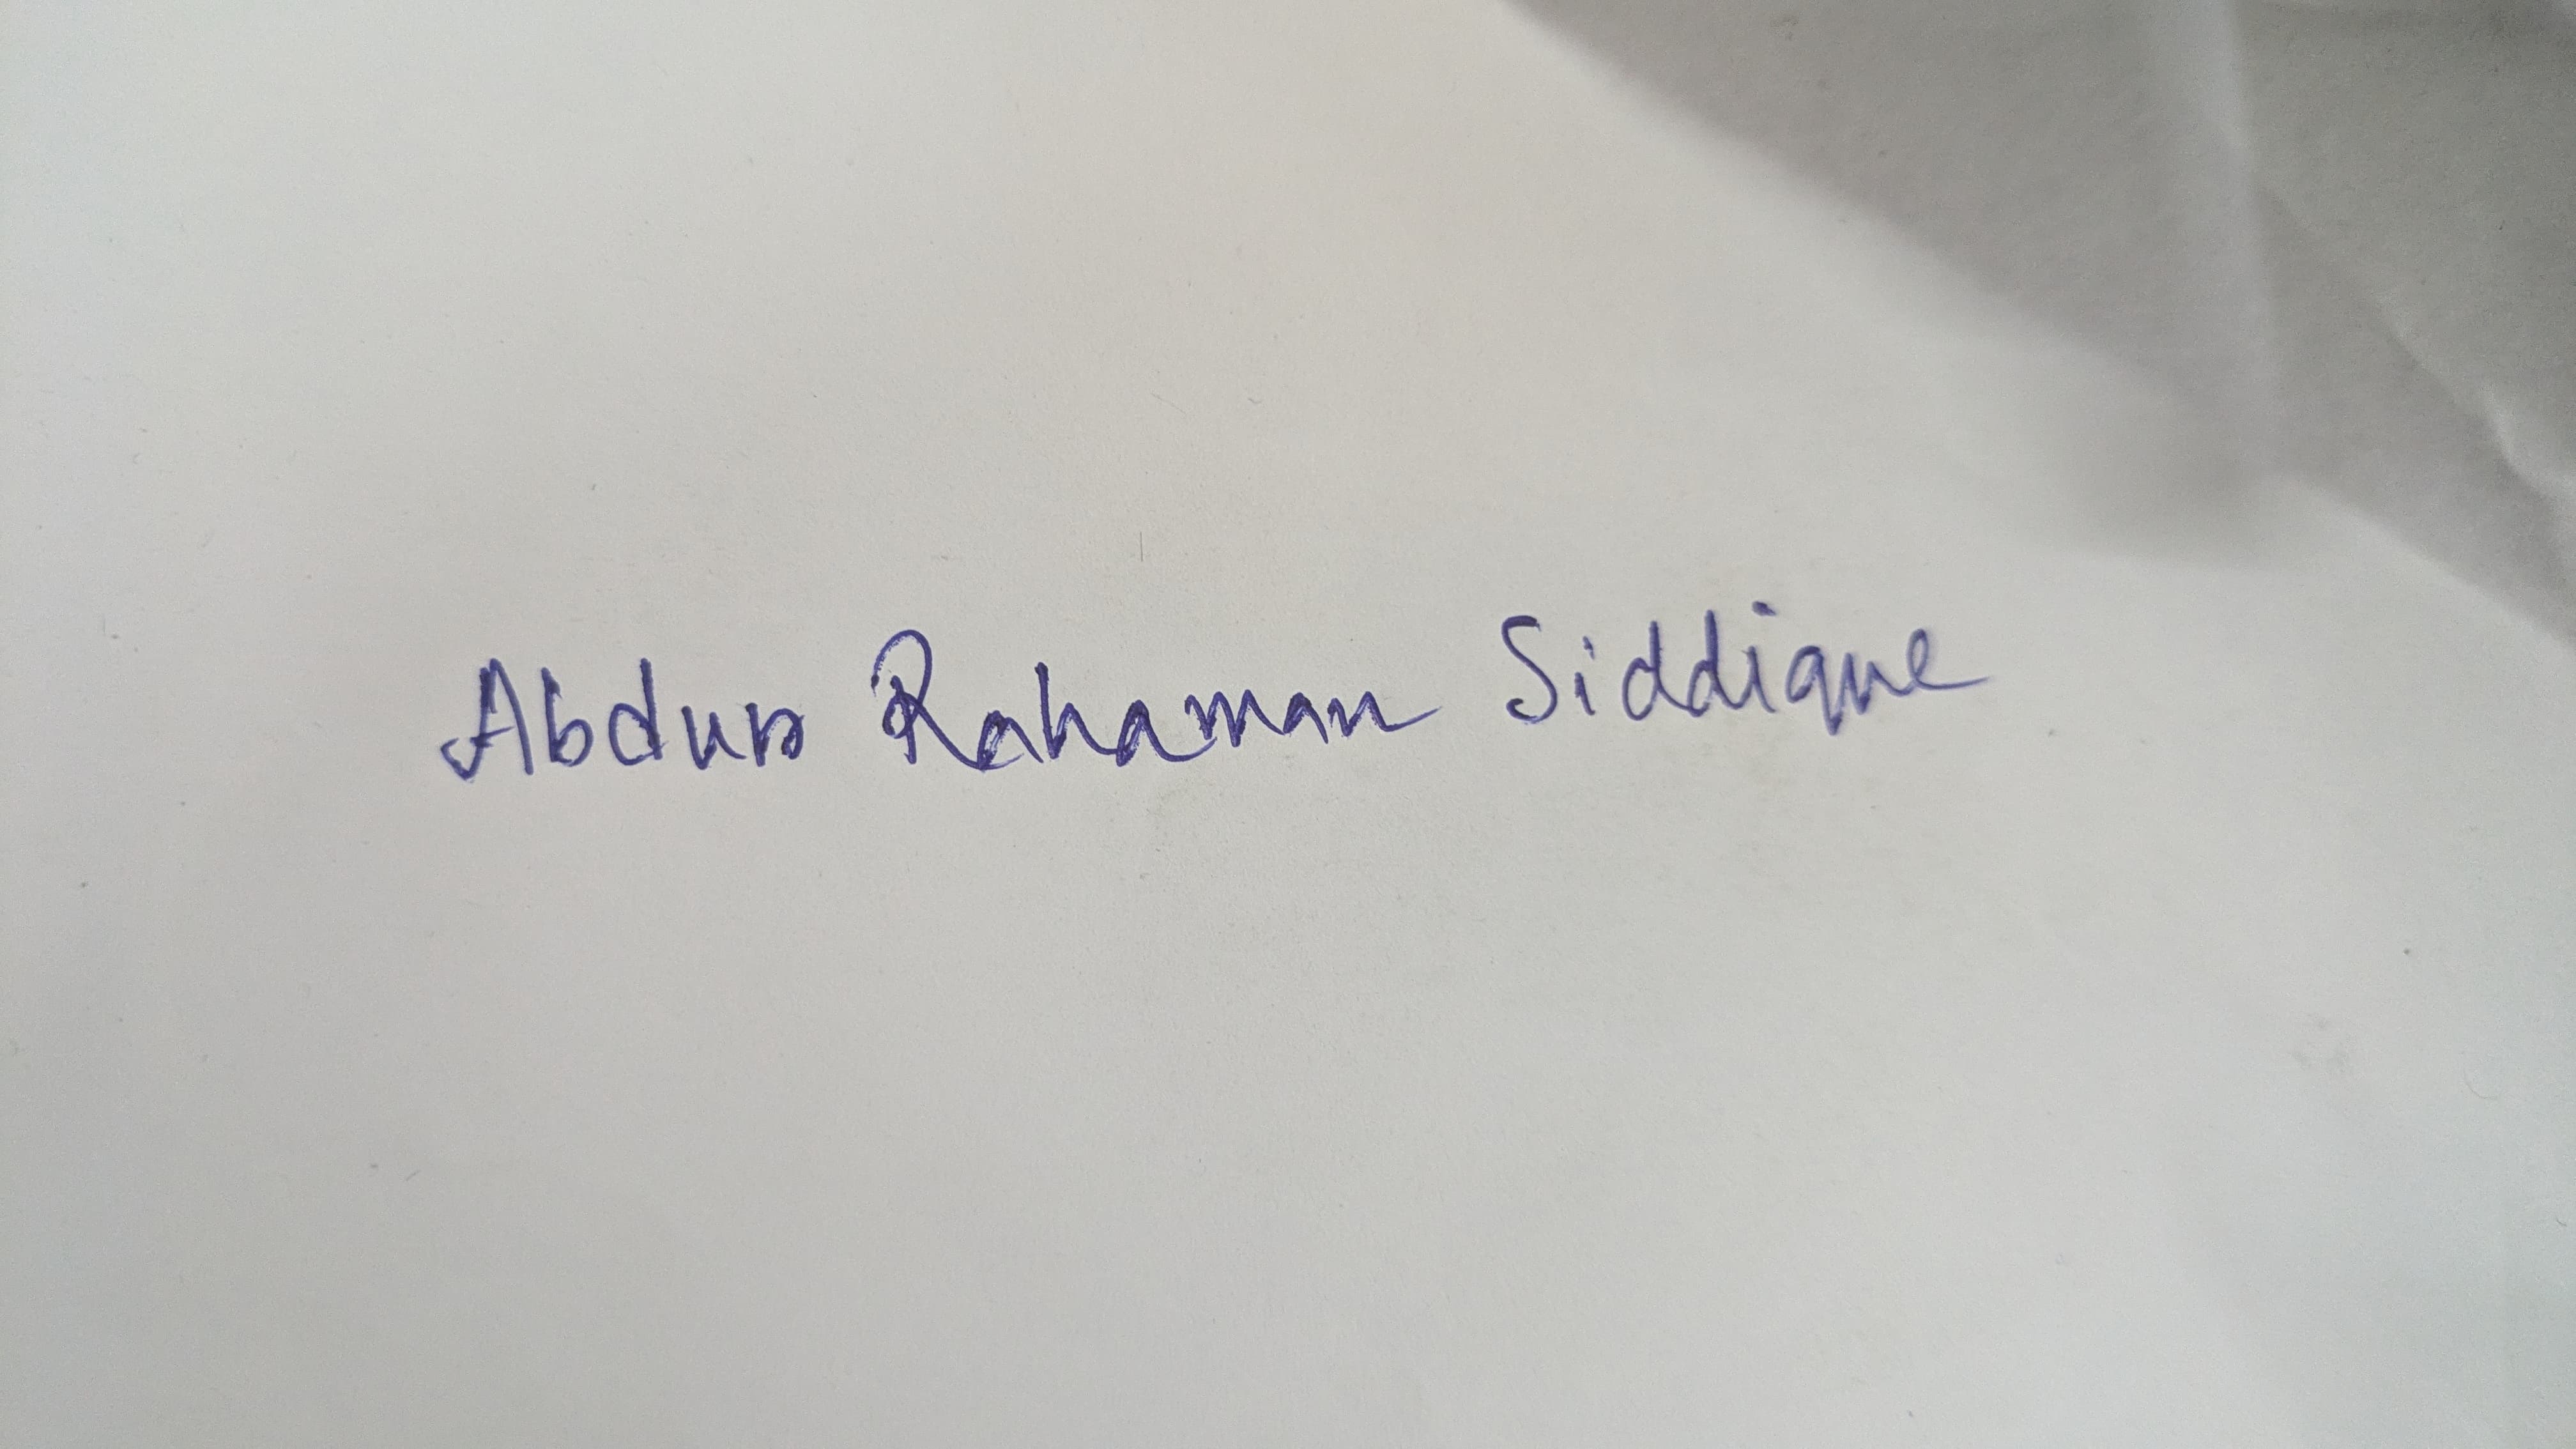 Abdur Rahaman Siddique